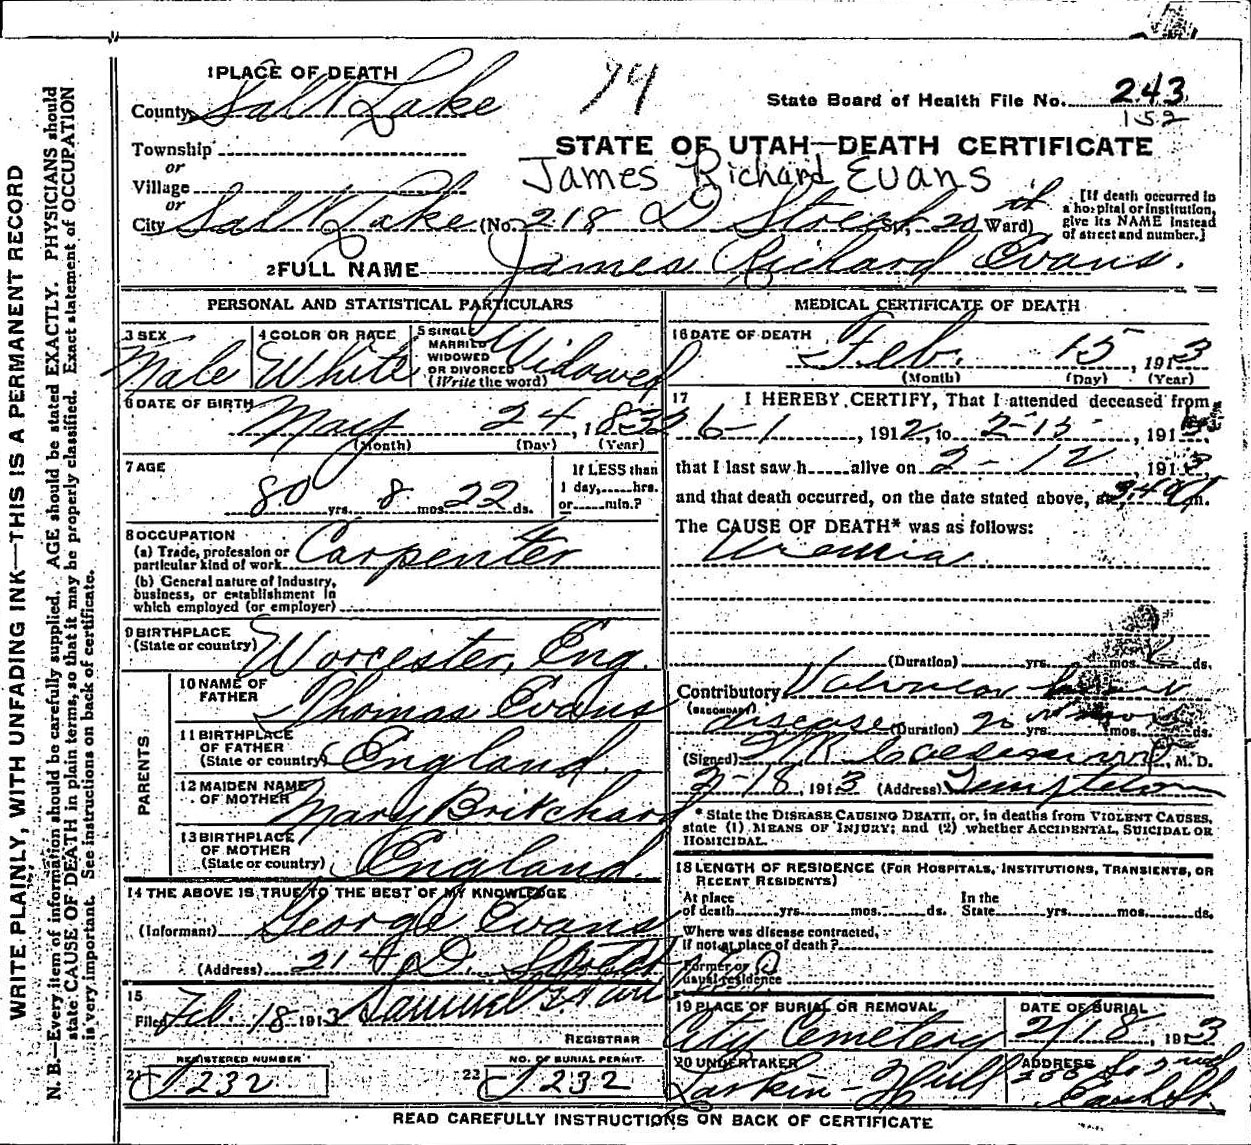 WRITE PLAINLY, WITH UNFADING INK—THIS IS A PERMANENT RECORD
N. B.—Every item of information should be carefully supplied. AGE should be stated EXACTLY. PHYSICIANS should
state CAUSE OF DEATH in plain terms, so that it may be properly classified. Exact statement of OCCUPATION
is very important. See instructions on back of certificate.
1 PLACE OF DEATH
74
County Salt Lake
State Board of Health File No. 243
152
Township
or
STATE OF UTAH—DEATH CERTIFICATE
Village
or
James Richard Evans
City Salt Lake (No. 218 D Street St., 20th Ward)
[If death occurred in
a hospital or institution,
give its NAME instead
of street and number.]
2 FULL NAME James Richard Evans.
PERSONAL AND STATISTICAL PARTICULARS
3 SEX Male
4 COLOR OR RACE White
5 SINGLE
MARRIED
WIDOWED
OR DIVORCED
(Write the word) Widowed
6 DATE OF BIRTH May 24, 1832
(Month) (Day) (Year)
7 AGE
80 yrs. 8 mos. 22 ds.
If LESS than
1 day,.....hrs.
or.....min.?
8 OCCUPATION
(a) Trade, profession or
particular kind of work Carpenter
(b) General nature of Industry,
business, or establishment in
which employed (or employer)
9 BIRTHPLACE
(State or country) Worcester, Eng.
PARENTS
10 NAME OF
FATHER Thomas Evans
11 BIRTHPLACE
OF FATHER
(State or country) England.
12 MAIDEN NAME
OF MOTHER Mary Britchard
13 BIRTHPLACE
OF MOTHER
(State or country) England.
14 THE ABOVE IS TRUE TO THE BEST OF MY KNOWLEDGE
(Informant) George Evans
(Address) 214 D. Street
15
Filed Feb. 18 1913 Samuel G. Paul
REGISTRAR
REGISTERED NUMBER
21 J 232
NO. OF BURIAL PERMIT.
22 J 232
MEDICAL CERTIFICATE OF DEATH
16 DATE OF DEATH
Feb. 15, 1913
(Month) (Day) (Year)
17 I HEREBY CERTIFY, That I attended deceased from
6-1, 1912, to 2-15, 1913,
that I last saw h.....alive on 2-12, 1913,
and that death occurred, on the date stated above, at m.
The CAUSE OF DEATH* was as follows:
Uremia
(Duration) yrs. mos. ds.
Contributory Valvular heart
(SECONDARY)
disease (Duration) 20 yrs. mos. ds.
(Signed) M. D.
2-18, 1913 (Address) Templeton
* State the DISEASE CAUSING DEATH, or, in deaths from VIOLENT CAUSES,
state (1) MEANS OF INJURY; and (2) whether ACCIDENTAL, SUICIDAL OR
HOMICIDAL.
18 LENGTH OF RESIDENCE (FOR HOSPITALS, INSTITUTIONS, TRANSIENTS, OR
RECENT RESIDENTS)
At place
of death yrs. mos. ds.
In the
State yrs. mos. ds.
Where was disease contracted,
if not at place of death?
Former or
usual residence
19 PLACE OF BURIAL OR REMOVAL
City Cemetery
DATE OF BURIAL
2/18, 1913
20 UNDERTAKER
Larkin-Hull
ADDRESS
So 2nd
East St.
READ CAREFULLY INSTRUCTIONS ON BACK OF CERTIFICATE